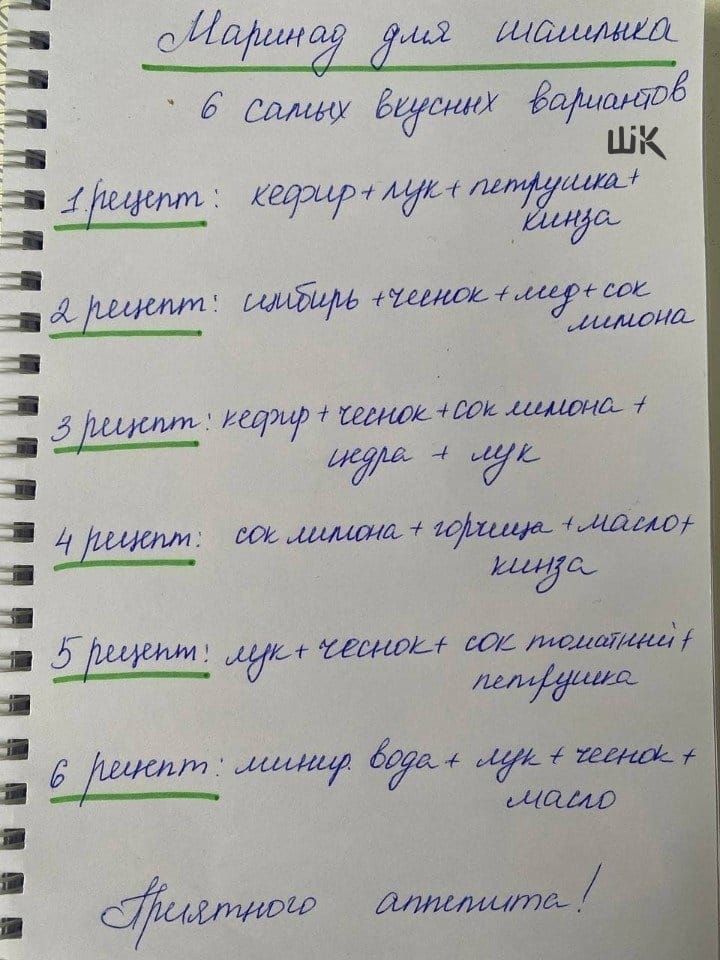 Маринад для шашлыка
6 самых вкусных вариантов
ШК
1.рецепт: кефир + лук + петрушка +
кинза
2 рецепт: имбирь + чеснок + мед + сок
лимона
3 рецепт: кефир + чеснок + сок лимона +
цедра + лук
4 рецепт: сок лимона + горчица + масло +
кинза
5 рецепт: лук + чеснок + сок томатный +
петрушка
6 рецепт: минир. вода + лук + чеснок +
масло
Приятного аппетита!